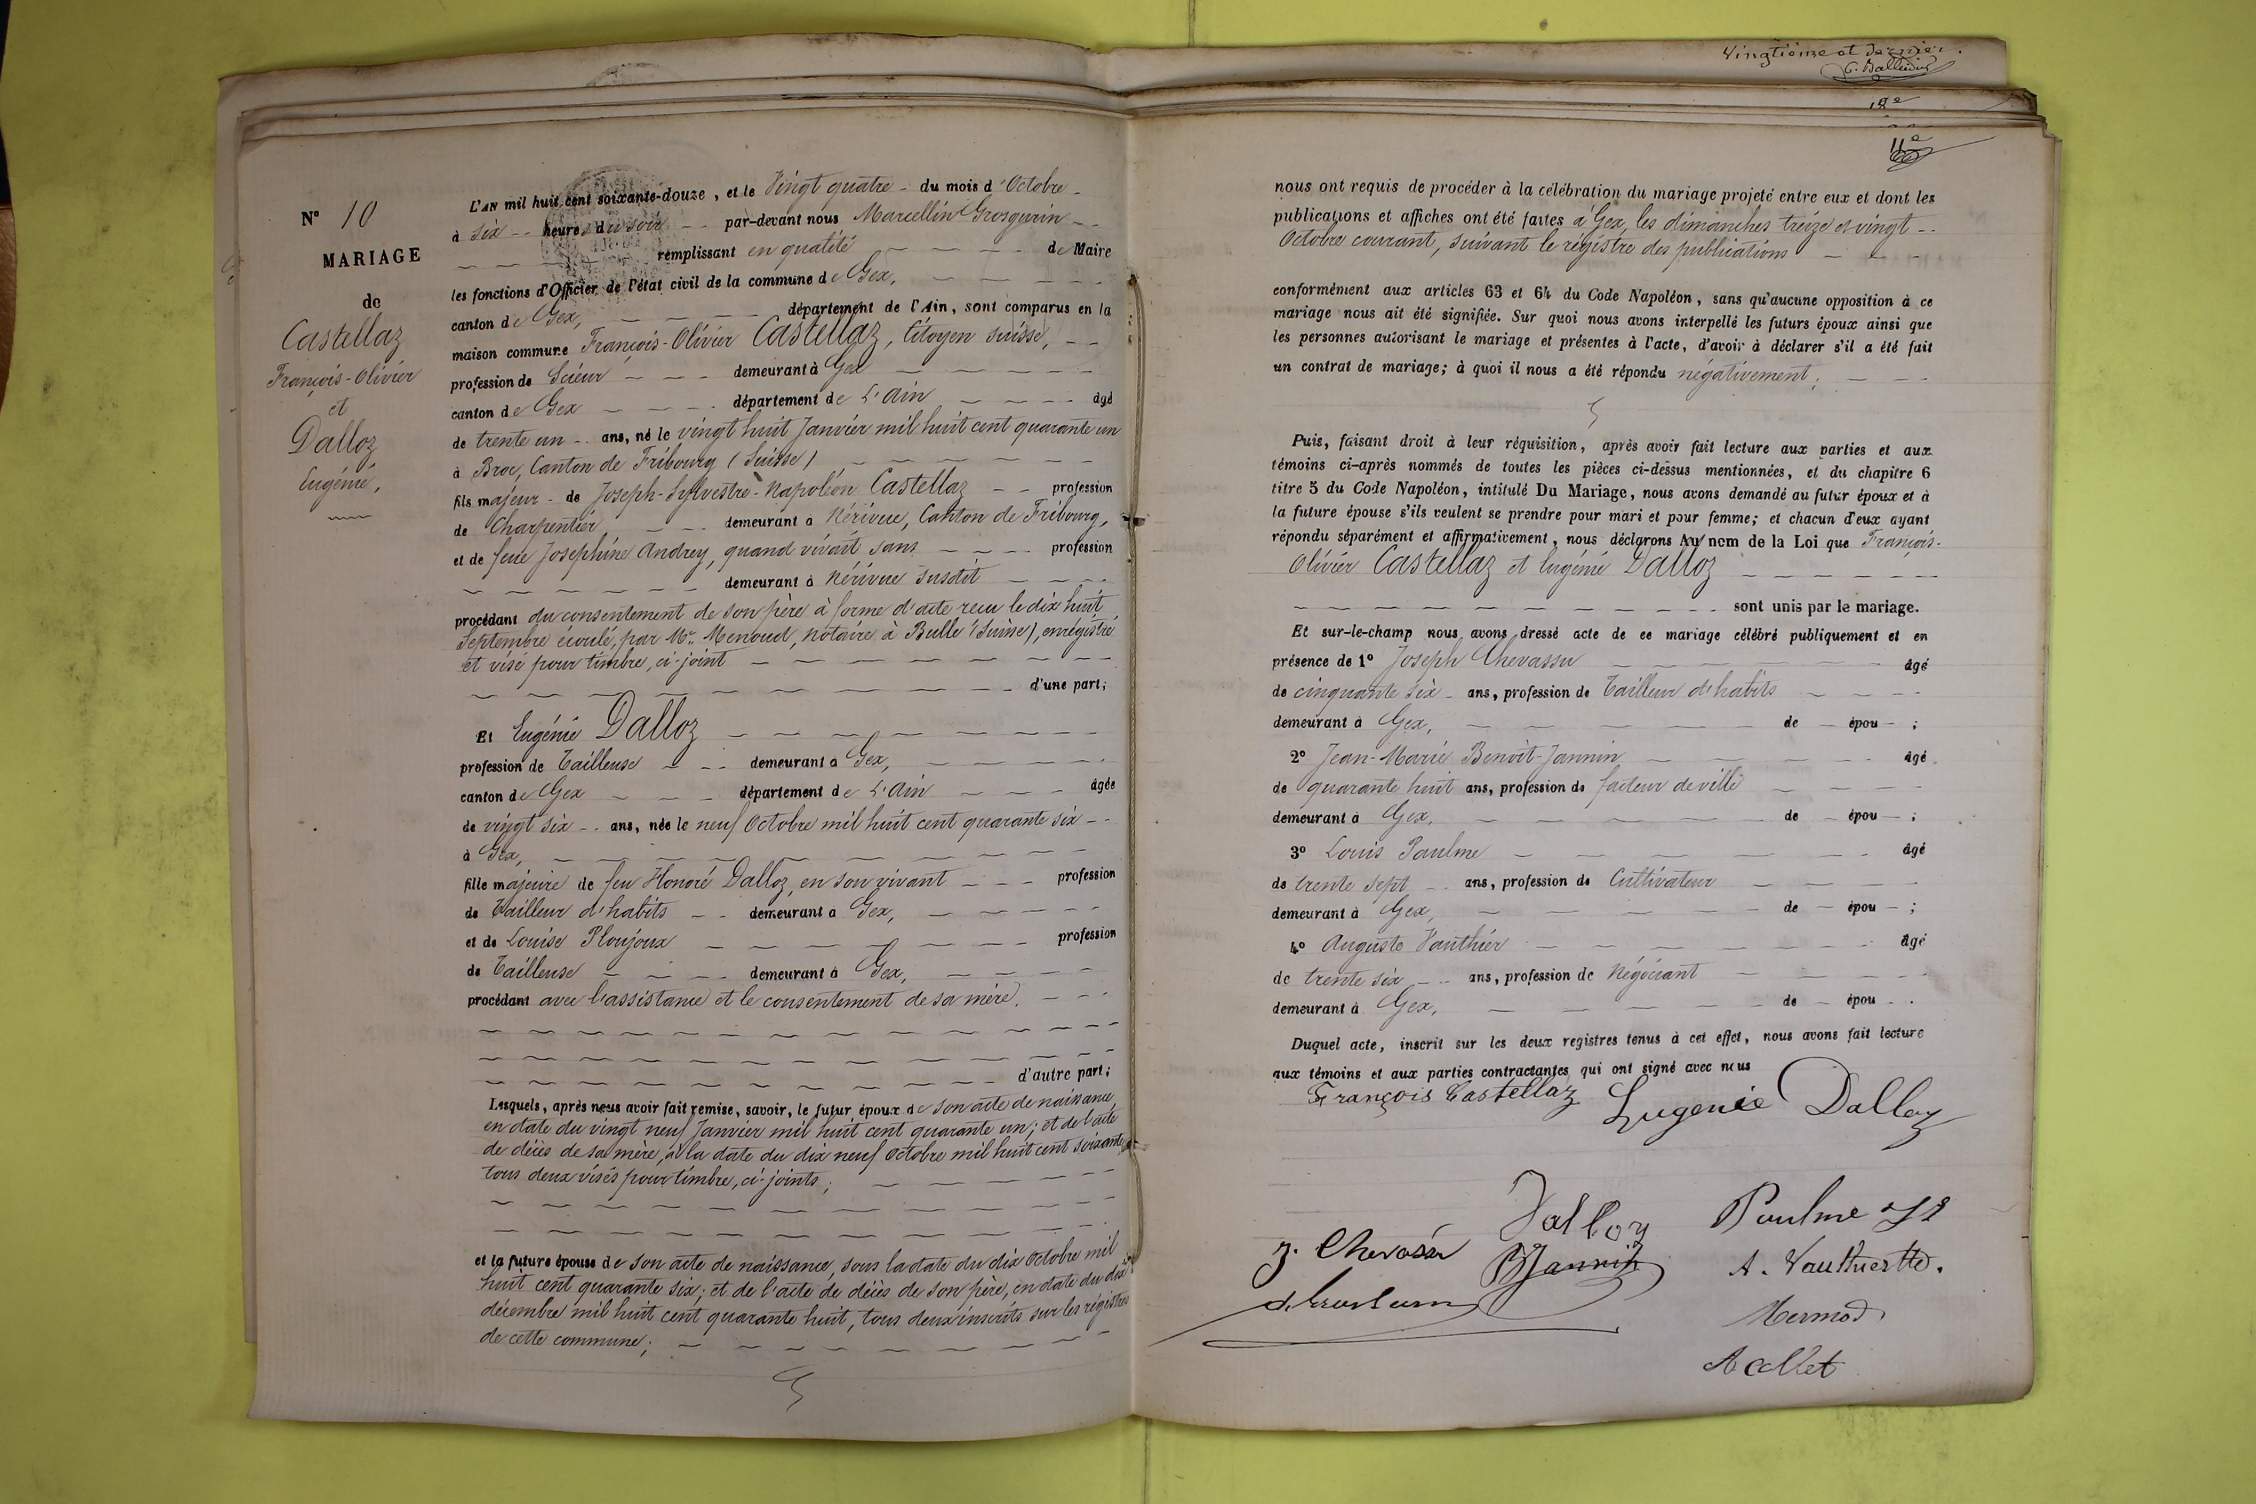 Vingtième et dernier.
11e
N° 10
MARIAGE
de
Castellaz
François-Olivier
et
Dalloz
Eugénie,
L'AN mil huit cent soixante-douze, et le Vingt quatre - du mois d'Octobre -
à six -- heures du soir -- par-devant nous Marcellin Grosgurin --
remplissant en qualité de Maire
les fonctions d'Officier de l'état civil de la commune de Gex,
canton de Gex, département de l'Ain, sont comparus en la
maison commune François-Olivier Castellaz, Citoyen suisse, --
profession de Scieur demeurant à Gex
canton de Gex département de L'Ain âgé
de trente un -- ans, né le vingt huit Janvier mil huit cent quarante un
à Broc, Canton de Fribourg (Suisse)
fils majeur - de Joseph-Sylvestre-Napoléon Castellaz -- profession
de Charpentier demeurant à Nérivue, Canton de Fribourg,
et de feue Joséphine Andrey, quand vivait sans profession
demeurant à Nérivue susdit
procédant du consentement de son père à forme d'acte reçu le dix huit
Septembre écoulé, par Mr. Menoud, notaire à Bulle (Suisse), enrégistré
et visé pour timbre, ci-joint
d'une part;
Et Eugénie Dalloz
profession de Tailleuse demeurant à Gex,
canton de Gex département de L'Ain âgée
de vingt six -- ans, née le neuf Octobre mil huit cent quarante six --
à Gex,
fille majeure de feu Honoré Dalloz, en son vivant profession
de Tailleur d'habits -- demeurant à Gex,
et de Louise Ploujoux profession
de Tailleuse demeurant à Gex,
procédant avec l'assistance et le consentement de sa mère.
d'autre part;
Lesquels, après nous avoir fait remise, savoir, le futur époux de son acte de naissance,
en date du vingt neuf Janvier mil huit cent quarante un; et de l'acte
de décès de sa mère, à la date du dix neuf Octobre mil huit cent soixante,
tous deux visés pour timbre, ci-joints;
et la future épouse de son acte de naissance, sous la date du dix Octobre mil
huit cent quarante six; et de l'acte de décès de son père, en date du dix
décembre mil huit cent quarante huit, tous deux inscrits sur les régistres
de cette commune;
nous ont requis de procéder à la célébration du mariage projeté entre eux et dont les
publications et affiches ont été faites à Gex, les dimanches treize et vingt --
Octobre courant, suivant le régistre des publications
conformément aux articles 63 et 64 du Code Napoléon, sans qu'aucune opposition à ce
mariage nous ait été signifiée. Sur quoi nous avons interpellé les futurs époux ainsi que
les personnes autorisant le mariage et présentes à l'acte, d'avoir à déclarer s'il a été fait
un contrat de mariage; à quoi il nous a été répondu négativement;
Puis, faisant droit à leur réquisition, après avoir fait lecture aux parties et aux
témoins ci-après nommés de toutes les pièces ci-dessus mentionnées, et du chapitre 6
titre 5 du Code Napoléon, intitulé Du Mariage, nous avons demandé au futur époux et à
la future épouse s'ils veulent se prendre pour mari et pour femme; et chacun d'eux ayant
répondu séparément et affirmativement, nous déclarons Au nom de la Loi que François-
Olivier Castellaz et Eugénie Dalloz
sont unis par le mariage.
Et sur-le-champ nous avons dressé acte de ce mariage célébré publiquement et en
présence de 1° Joseph Chevassu âgé
de cinquante six - ans, profession de Tailleur d'habits
demeurant à Gex, de - épou - ;
2° Jean-Marie Benoît-Jannin âgé
de quarante huit ans, profession de facteur de ville
demeurant à Gex, de - épou - ;
3° Louis Paulme âgé
de trente sept -- ans, profession de Cultivateur
demeurant à Gex, de - épou - ;
4° Auguste Vauthier âgé
de trente six -- ans, profession de négociant
demeurant à Gex, de - épou - .
Duquel acte, inscrit sur les deux registres tenus à cet effet, nous avons fait lecture
aux témoins et aux parties contractantes qui ont signé avec nous
François Castellaz Eugenie Dalloz
Dalloz Paulme
J. Chevassu BJannin A. Vauthier
Mermod